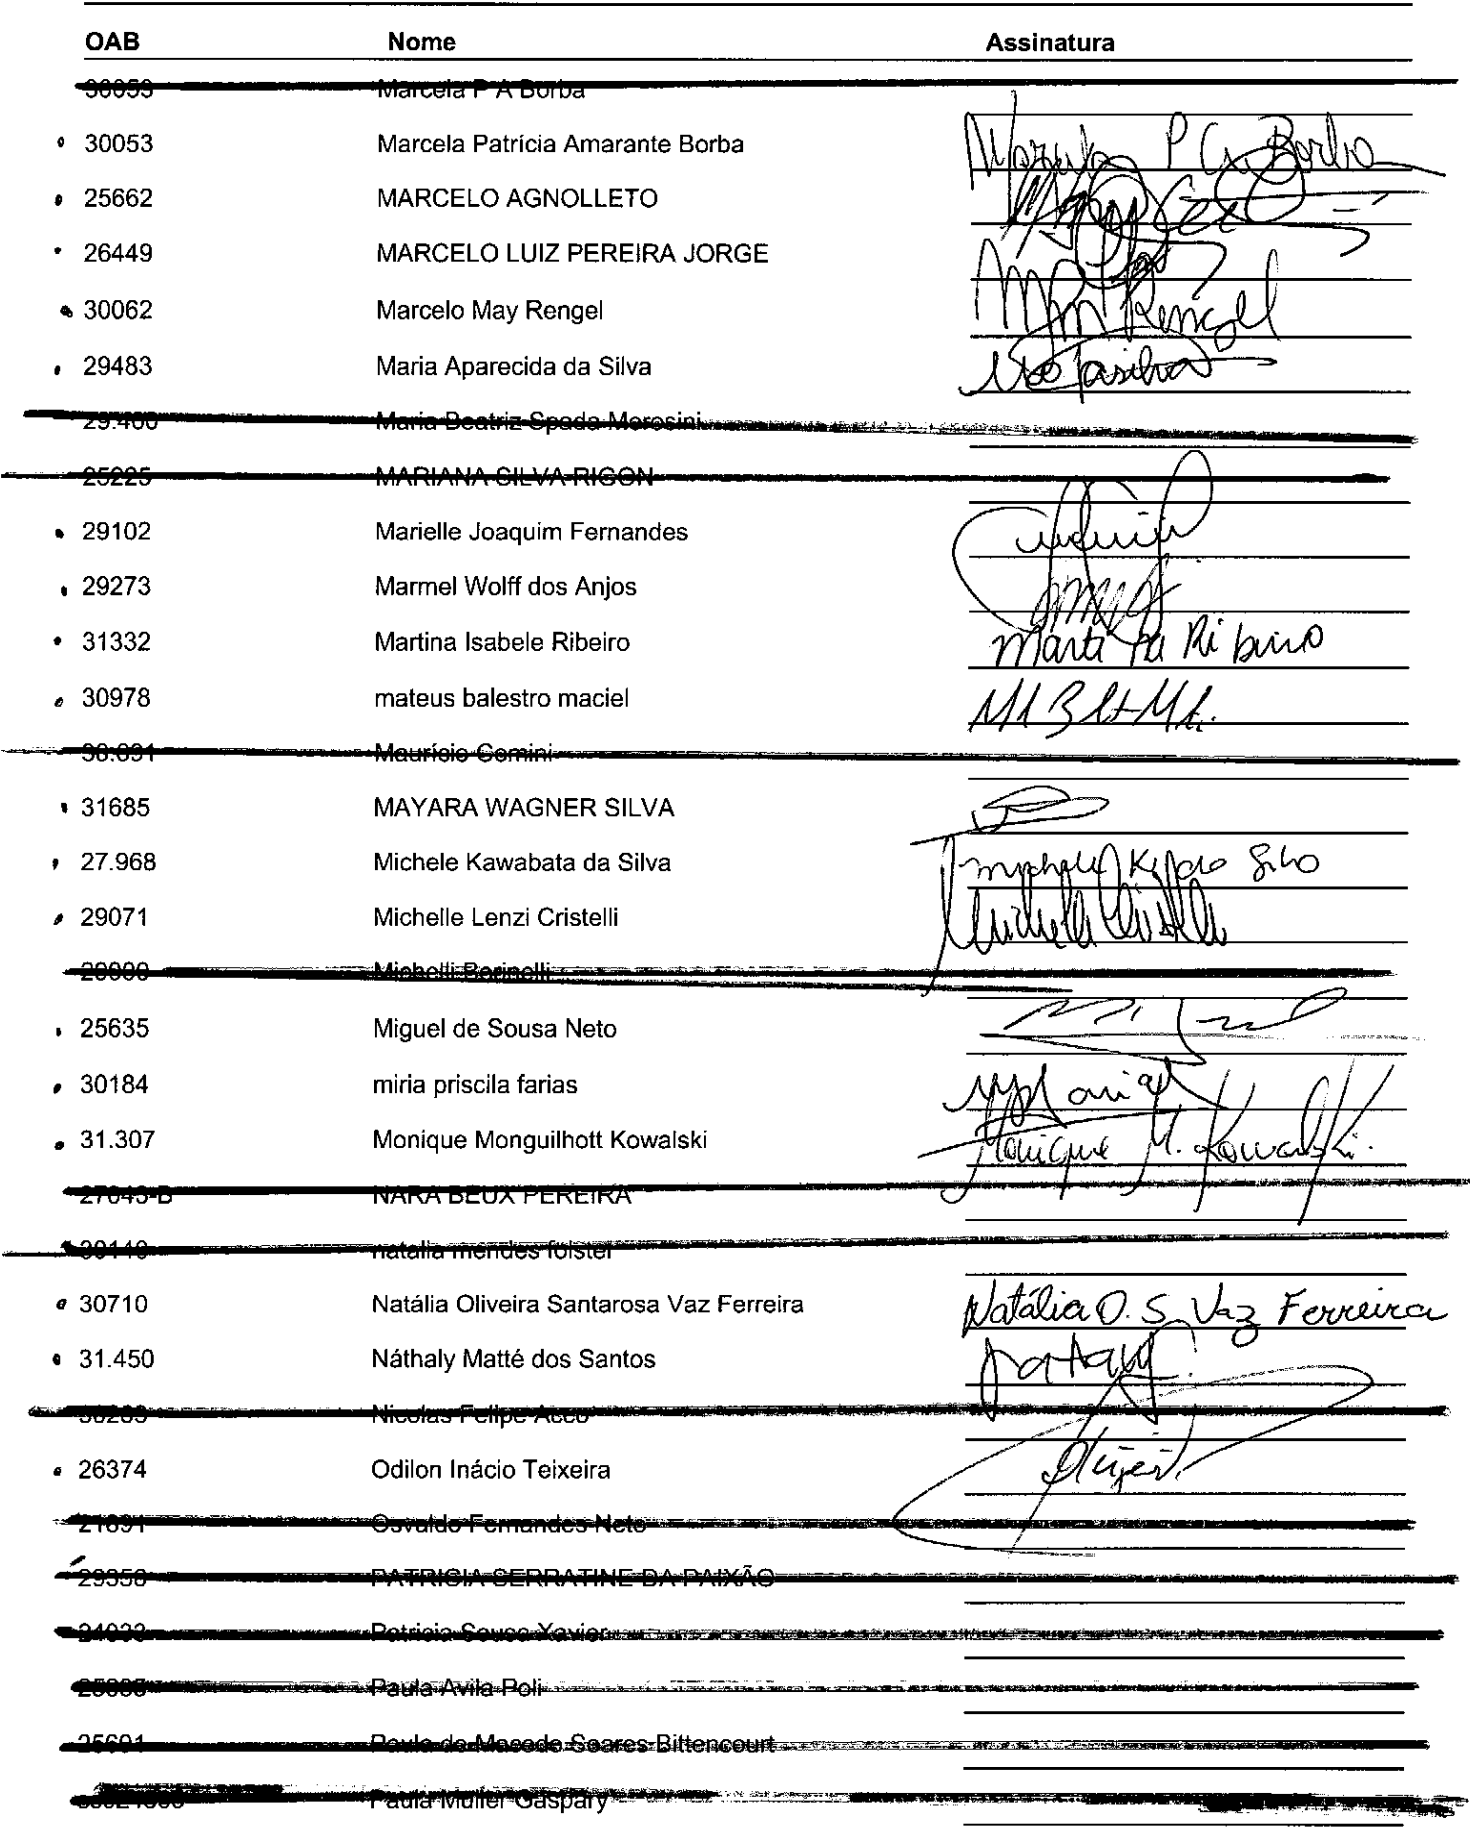 OAB Nome Assinatura
30053 Marcela P A Borba
30053 Marcela Patrícia Amarante Borba Marcela P A Borba
25662 MARCELO AGNOLLETO
26449 MARCELO LUIZ PEREIRA JORGE
30062 Marcelo May Rengel MM Rengel
29483 Maria Aparecida da Silva
29.460 Maria Beatriz Spada Morosini
25225 MARIANA SILVA RIGON
29102 Marielle Joaquim Fernandes
29273 Marmel Wolff dos Anjos
31332 Martina Isabele Ribeiro Martina Ribeiro
30978 mateus balestro maciel
Maurício Comini
31685 MAYARA WAGNER SILVA
27.968 Michele Kawabata da Silva
29071 Michelle Lenzi Cristelli Michelle Cristelli
Michelli Borinelli
25635 Miguel de Sousa Neto
30184 miria priscila farias
31.307 Monique Monguilhott Kowalski Monique M. Kowalski.
27043-B NARA BEUX PEREIRA
natalia mendes folster
30710 Natália Oliveira Santarosa Vaz Ferreira Natália O. S. Vaz Ferreira
31.450 Náthaly Matté dos Santos
Nicolas Felipe Acco
26374 Odilon Inácio Teixeira
21691 Osvaldo Fernandes Neto
PATRICIA SERRATINE DA PAIXÃO
Patricia Sousa Xavier
Paula Avila Poli
25601 Paula de Macedo Soares Bittencourt
Paula Muller Gaspary